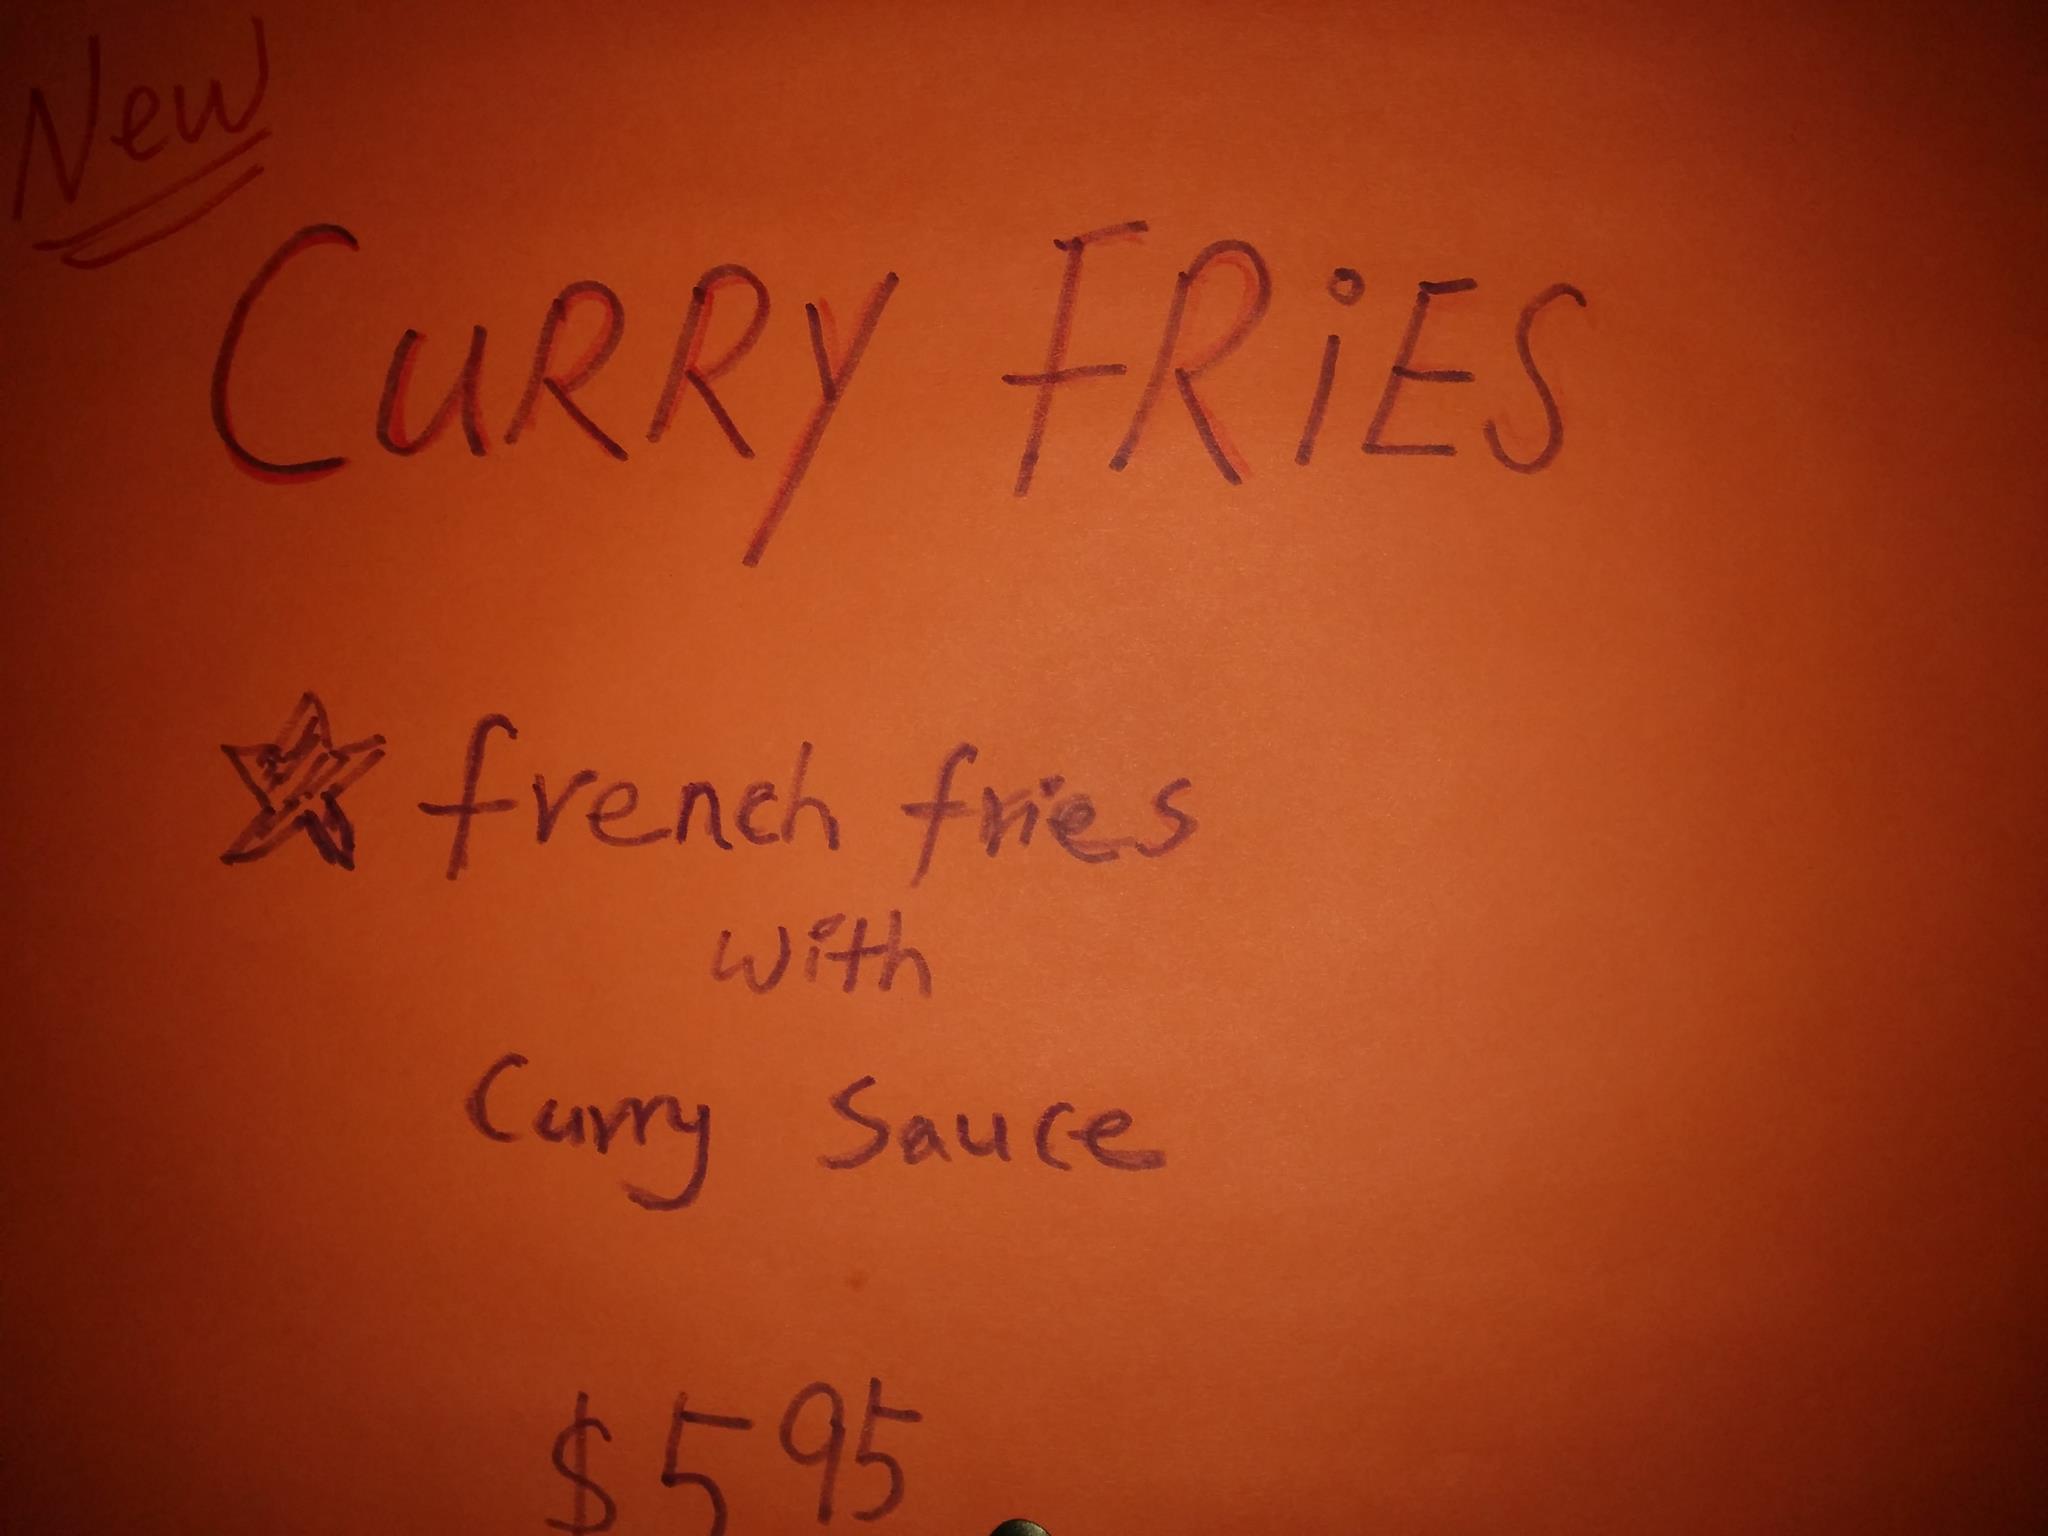 New
CURRY FRiES
french fries
with
Curry Sauce
$5 95